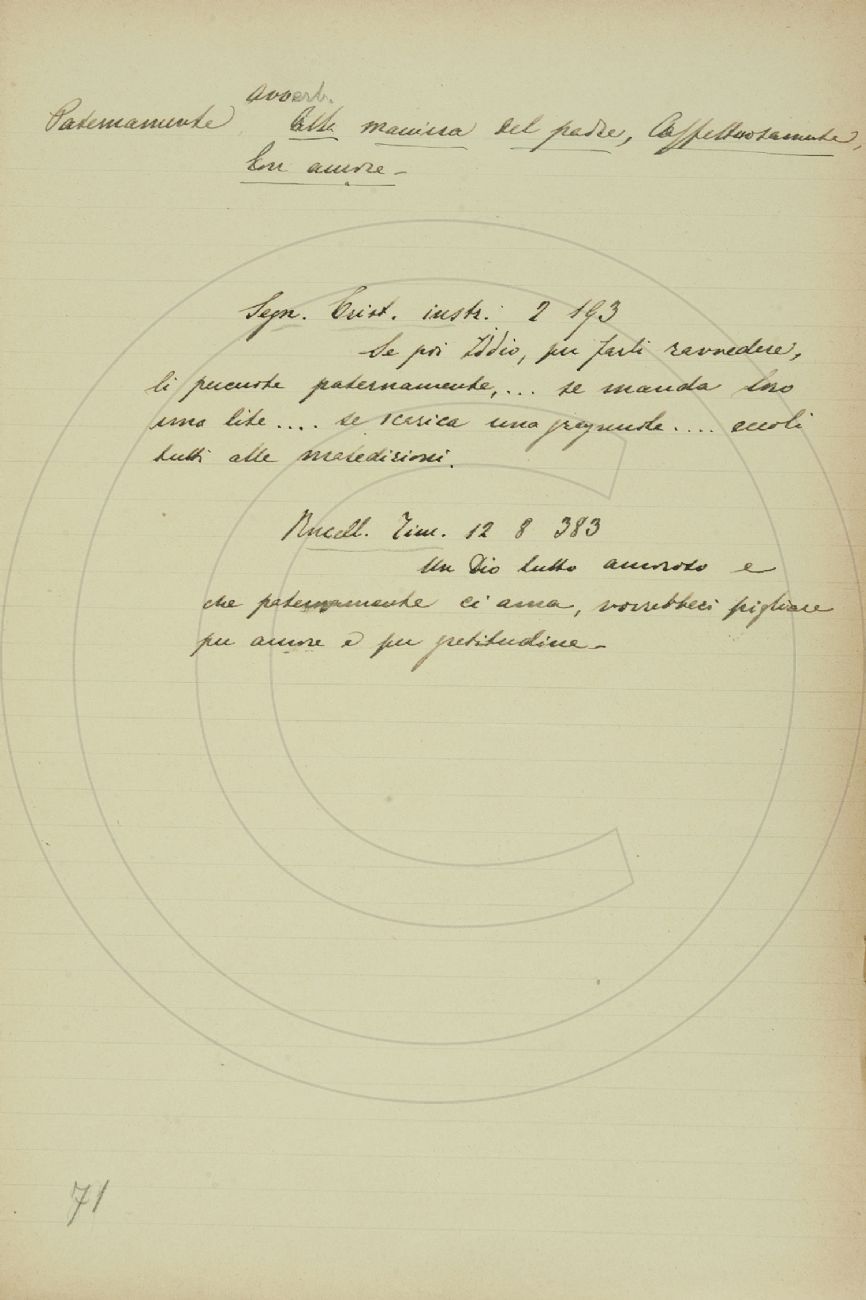 avverb.
Paternamente Alla maniera del padre, Affettuosamente,
Con amore -
Segn. Crist. instr. 2 193
Se poi Iddio, per farli ravvedere,
li percuote paternamente,... se manda loro
una lite.... se scarica una gragnuola.... eccoli
tutti alle maledizioni.
Rucell. Tim. 12 8 383
Un Dio tutto amoroso e
che paternamente ci ama, vorrebbeci pigliare
per amore e per gratitudine -
71